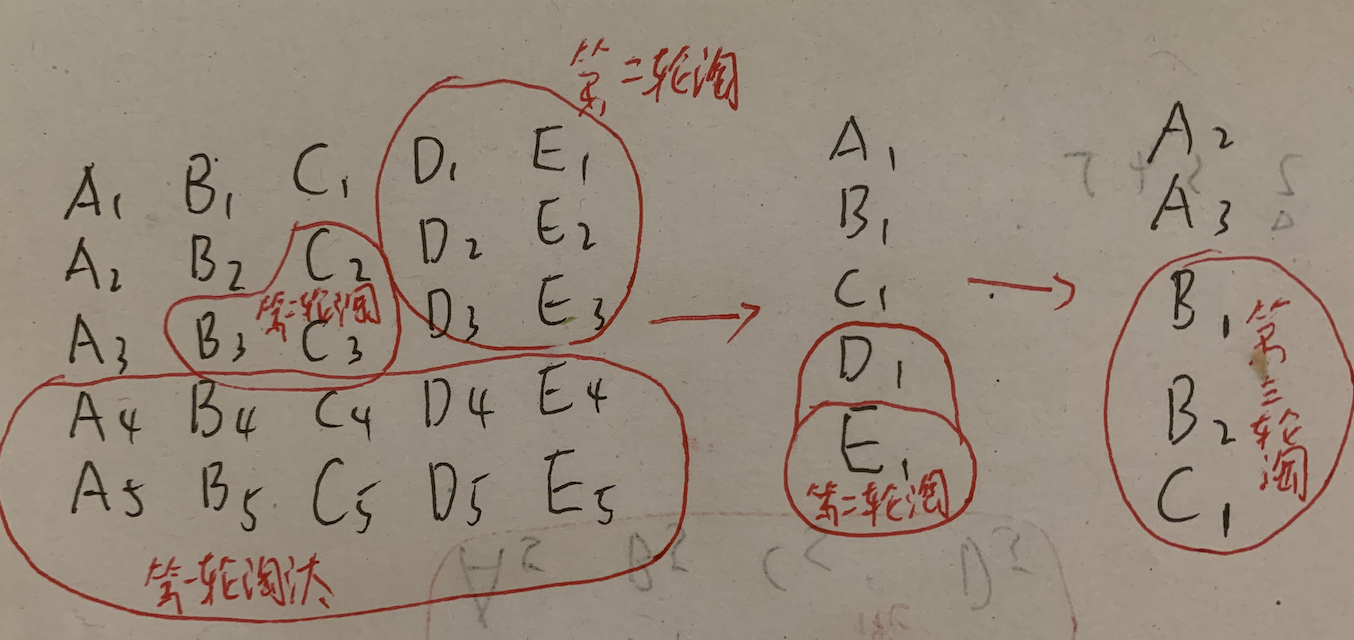 第二轮淘
A1 B1 C1 D1 E1
A2 B2 C2 D2 E2
第二轮淘
A3 B3 C3 D3 E3
A4 B4 C4 D4 E4
A5 B5 C5 D5 E5
第一轮淘汰
A1
B1
C1
D1
E1
第二轮淘
A2
A3
B1
B2
C1
第三轮淘